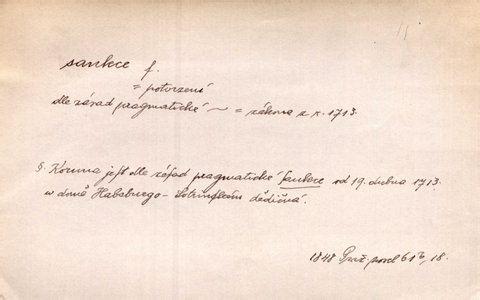 sankce f.
= potvrzení
dle zásad pragmatické ~ = zákona z r. 1713.
§. Koruna jest dle zásad pragmatické sankce od 19. dubna 1713.
w domě Habsburgo-Lotringském dědičná.
1848 Praž. 61b, 18.